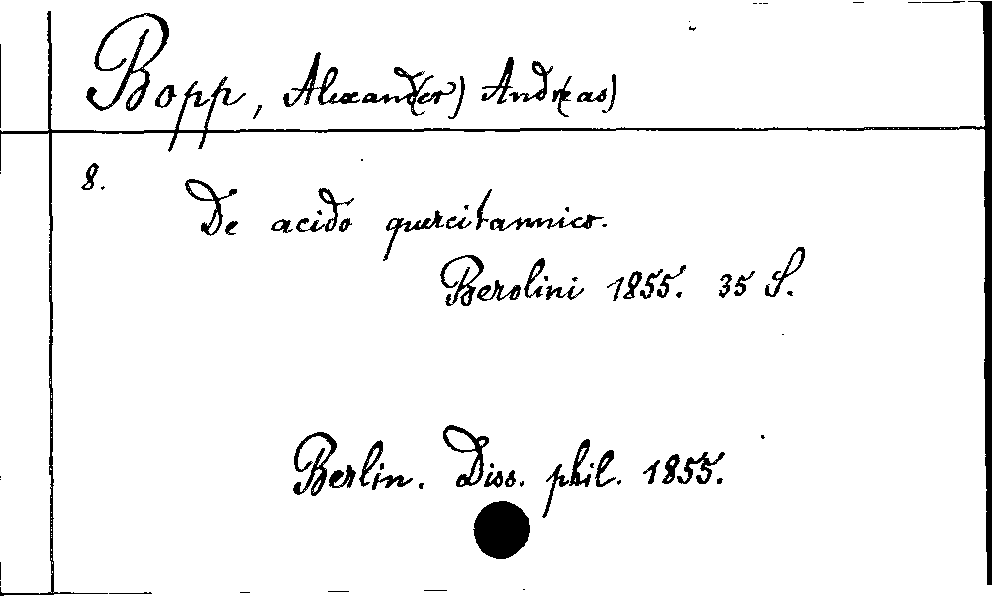 Bopp, Alexand(er) Andr(eas)
8.
De acido quercitannico.
Berolini 1855. 35 S.
Berlin. Diss. phil. 1855.